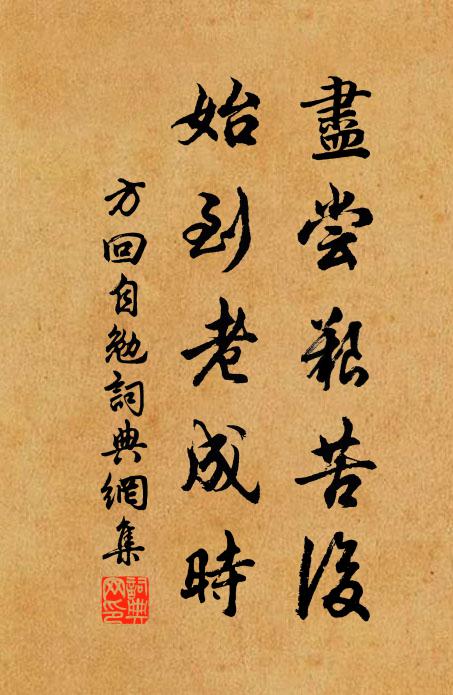 盡尝艱苦後
始到老成時
方回自勉詞典網集
詞典网印